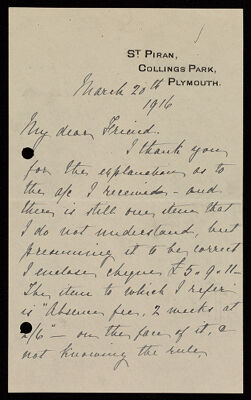 ST PIRAN,
COLLINGS PARK,
PLYMOUTH.
March 20th
1916
My dear Friend.
I thank you
for the explanation as to
the a/c I received - and
there is still one item that
I do not understand, but
presuming it to be correct
I enclose cheque £5.9.11-
The item to which I refer
is "Absence fee, 2 weeks at
2/6" - on the face of it, &
not knowing the rule,